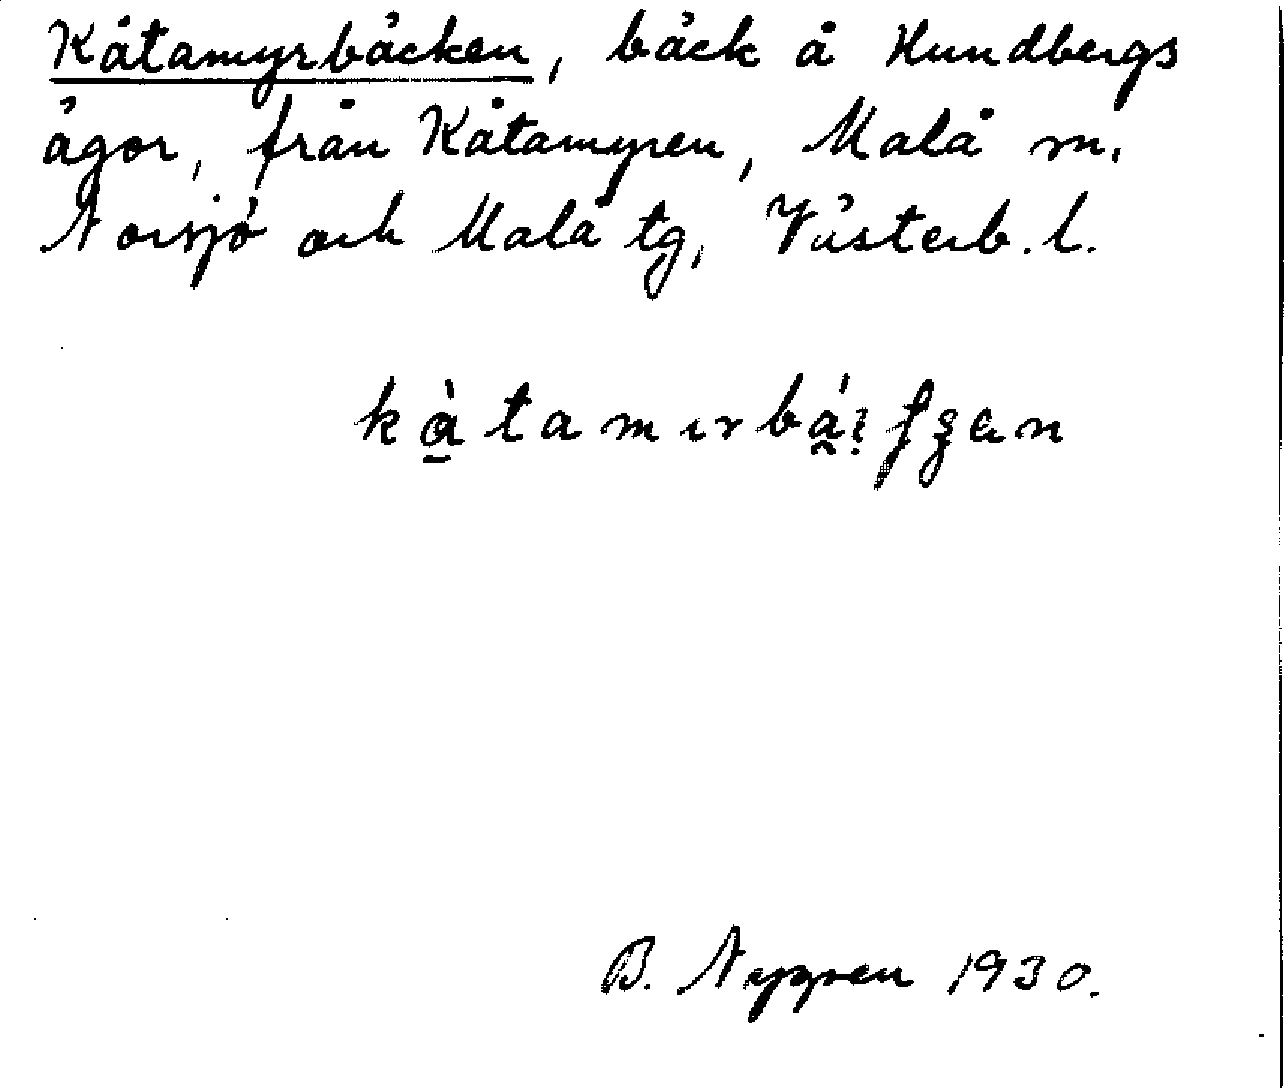 Kåtamyrbäcken, bäck å Hundbergs
ägor, från Kåtamyren, Malå m.
Norsjö och Malå tg, Västerb. l.
B. Nygren 1930.